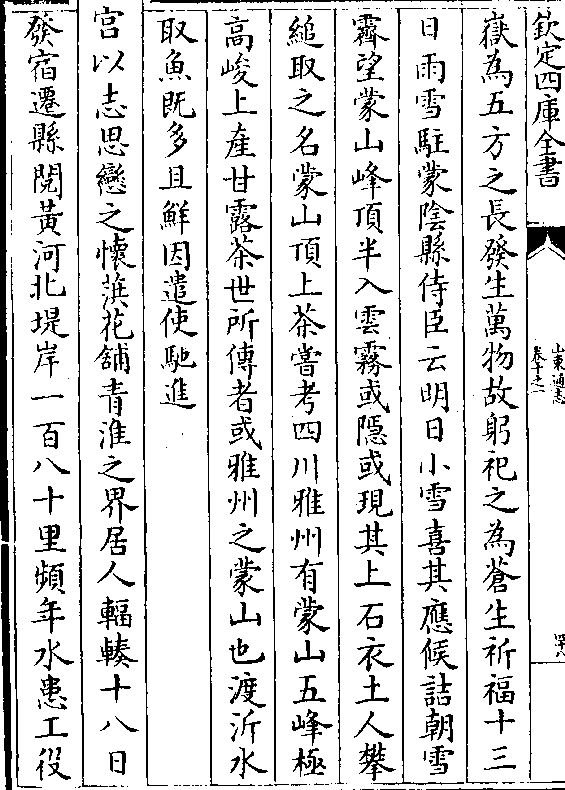 欽定四庫全書
山東通志
卷十之一
嶽為五方之長發生萬物故躬祀之為蒼生祈福十三
日雨雪駐蒙陰縣侍臣云明日小雪喜其應候詰朝雪
霽望蒙山峰頂半入雲霧或隱或現其上石衣土人攀
縋取之名蒙山頂上茶嘗考四川雅州有蒙山五峰極
高峻上產甘露茶世所傳者或雅州之蒙山也渡沂水
取魚既多且鮮因遣使馳進
宫以志思戀之懷蓀花舖青淮之界居人輻輳十八日
發宿遷縣閱黃河北堤岸一百八十里頻年水患工役